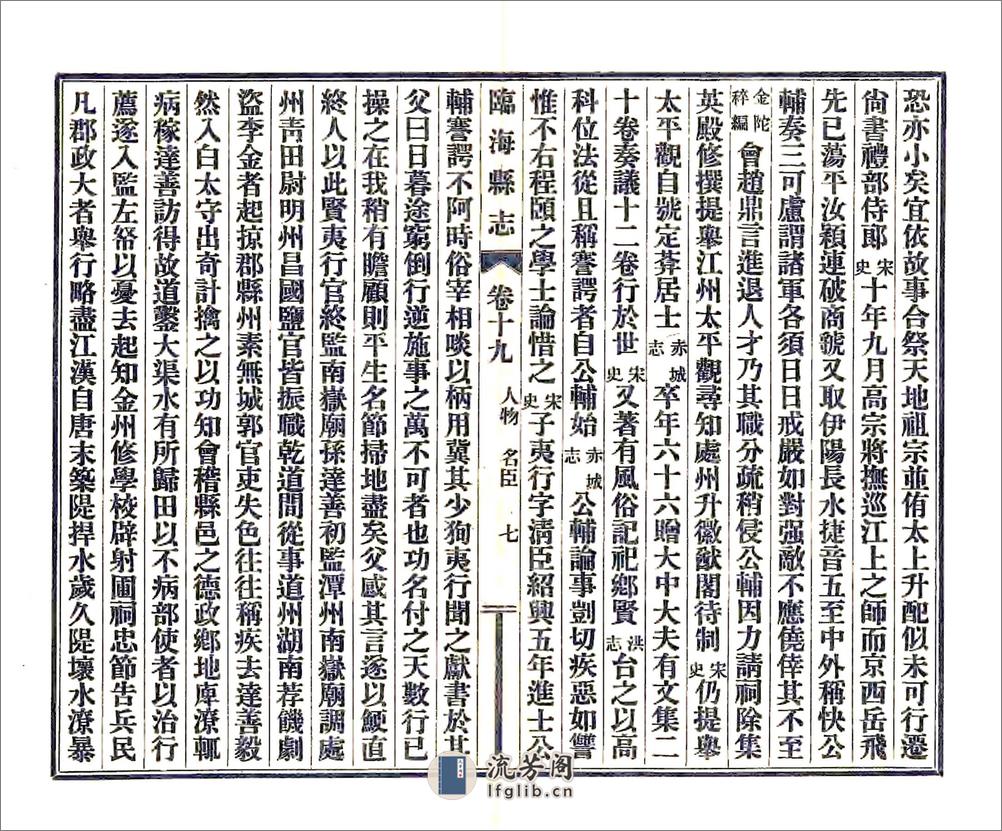 恐亦小矣宜依故事合祭天地祖宗並侑太上升配似未可行遷
尙書禮部侍郞宋史十年九月高宗將撫巡江上之師而京西岳飛
先已蕩平汝潁連破商虢又取伊陽長水捷音五至中外稱快公
輔奏三可慮謂諸軍各須日日戒嚴如對强敵不應僥倖其不至
金陀稡編會趙鼎言進退人才乃其職分疏稍侵公輔因力請祠除集
英殿修撰提舉江州太平觀尋知處州升徽猷閣待制宋史仍提舉
太平觀自號定莽居士赤城志卒年六十六贈大中大夫有文集二
十卷奏議十二卷行於世宋史又著有風俗記祀鄕賢洪志台之以高
科位法從且稱謇諤者自公輔始赤城志公輔論事剴切疾惡如讐
惟不右程頤之學士論惜之宋史子夷行字淸臣紹興五年進士公
臨海縣志 卷十九 人物 名臣 七
輔謇諤不阿時俗宰相啖以柄用冀其少狥夷行聞之獻書於其
父曰日暮途窮倒行逆施事之萬不可者也功名付之天數行已
操之在我稍有瞻顧則平生名節掃地盡矣父感其言遂以鯁直
終人以此賢夷行官終監南嶽廟孫達善初監潭州南嶽廟調處
州靑田尉明州昌國鹽官皆振職乾道間從事道州湖南荐饑劇
盜李金者起掠郡縣州素無城郭官吏失色往往稱疾去達善毅
然入白太守出奇計擒之以功知會稽縣邑之德政鄕地庳潦輒
病稼達善訪得故道鑿大渠水有所歸田以不病部使者以治行
薦遂入監左帑以憂去起知金州修學校辟射圃祠忠節告兵民
凡郡政大者舉行略盡江漢自唐末築隄捍水歲久隄壞水潦暴
流芳阁
lfglib.cn